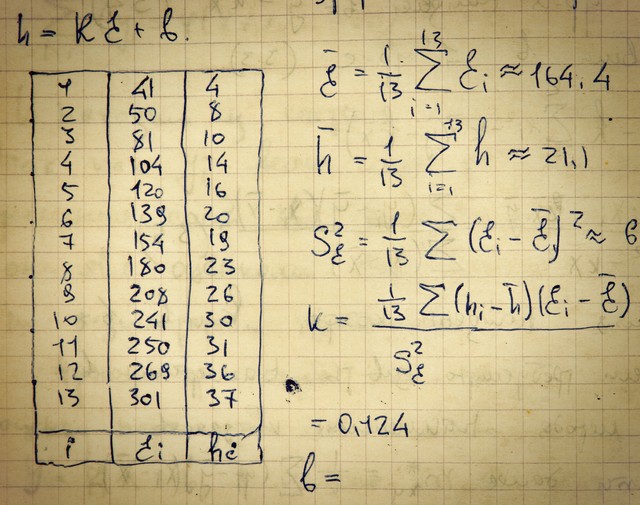 h = kℰ + b.
1 41 4
2 50 8
3 81 10
4 104 14
5 120 16
6 139 20
7 154 19
8 180 23
9 208 26
10 241 30
11 250 31
12 269 36
13 301 37
i ℰi hi
ℰ̄ = 1/13 ∑_{i=1}^{13} ℰi ≈ 164,4
h̄ = 1/13 ∑_{i=1}^{13} h ≈ 21,1
S²_ℰ = 1/13 ∑ (ℰi - ℰ̄)² ≈ 6
k = (1/13 ∑ (hi - h̄)(ℰi - ℰ̄)) / S²_ℰ
= 0,124
b =